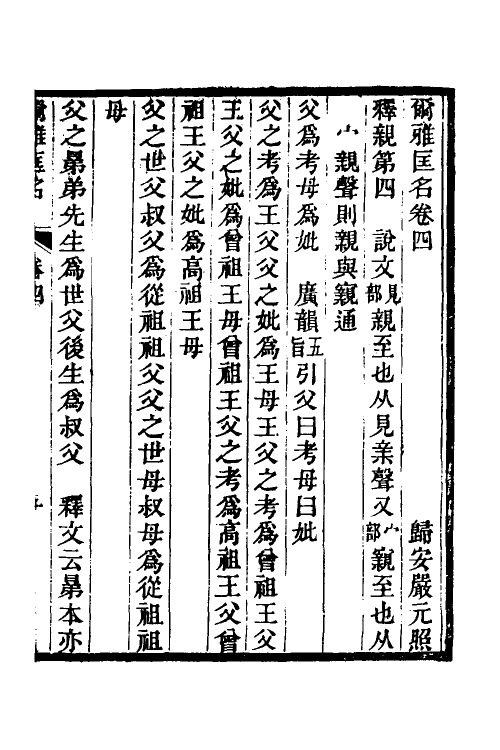 爾雅匡名卷四 歸安嚴元照
釋親第四 說文見部親至也从見亲聲又宀部寴至也从
宀親聲則親與寴通
父爲考母爲妣 廣韻五旨引父曰考母曰妣
父之考爲王父父之妣爲王母王父之考爲曾祖王父
王父之妣爲曾祖王母曾祖王父之考爲高祖王父曾
祖王父之妣爲高祖王母
父之世父叔父爲從祖祖父父之世母叔母爲從祖祖
母
父之晜弟先生爲世父後生爲叔父 釋文云晜本亦
爾雅匡名 卷四